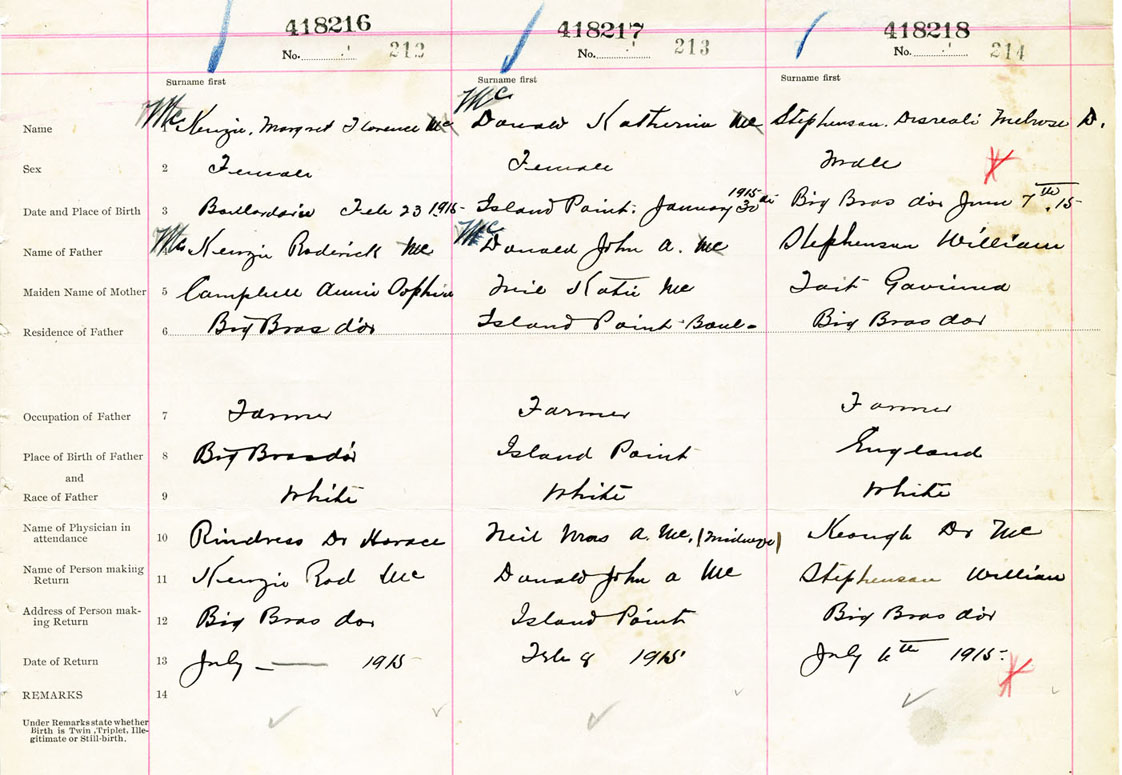 418216 418217 418218
No. 212 No. 213 No. 214
Surname first Surname first Surname first
Name 1 Mc Kenzie, Margret Florence Mc Mc Donald Katherine Mc Stephenson. Disreali Melrose D.
Sex 2 Female Female Male
Date and Place of Birth 3 Feb 23 1915 Island Point. January 30 1915 Big Bras dor June 7th 15
Name of Father Mc Kenzie Roderick Mc Mc Donald John A. Mc Stephenson William
Maiden Name of Mother 5 Campbell Annie Sophia Neil Katie Mc Tait
Residence of Father 6 Big Bras d'or Island Point Big Bras dor
Occupation of Father 7 Farmer Farmer Farmer
Place of Birth of Father 8 Big Bras d'or Island Point England
and
Race of Father 9 White White White
Name of Physician in
attendance 10 Rindress Dr Horace Neil Mrs A. Mc, (Midwife) Keough Dr Mc
Name of Person making
Return 11 Kenzie Rod Mc Donald John A Mc Stephenson William
Address of Person mak-
ing Return 12 Big Bras dor Island Point Big Bras d'or
Date of Return 13 July — 1915 Feb 8 1915 July 6th 1915.
REMARKS 14
Under Remarks state whether
Birth is Twin, Triplet, Ille-
gitimate or Still-birth.